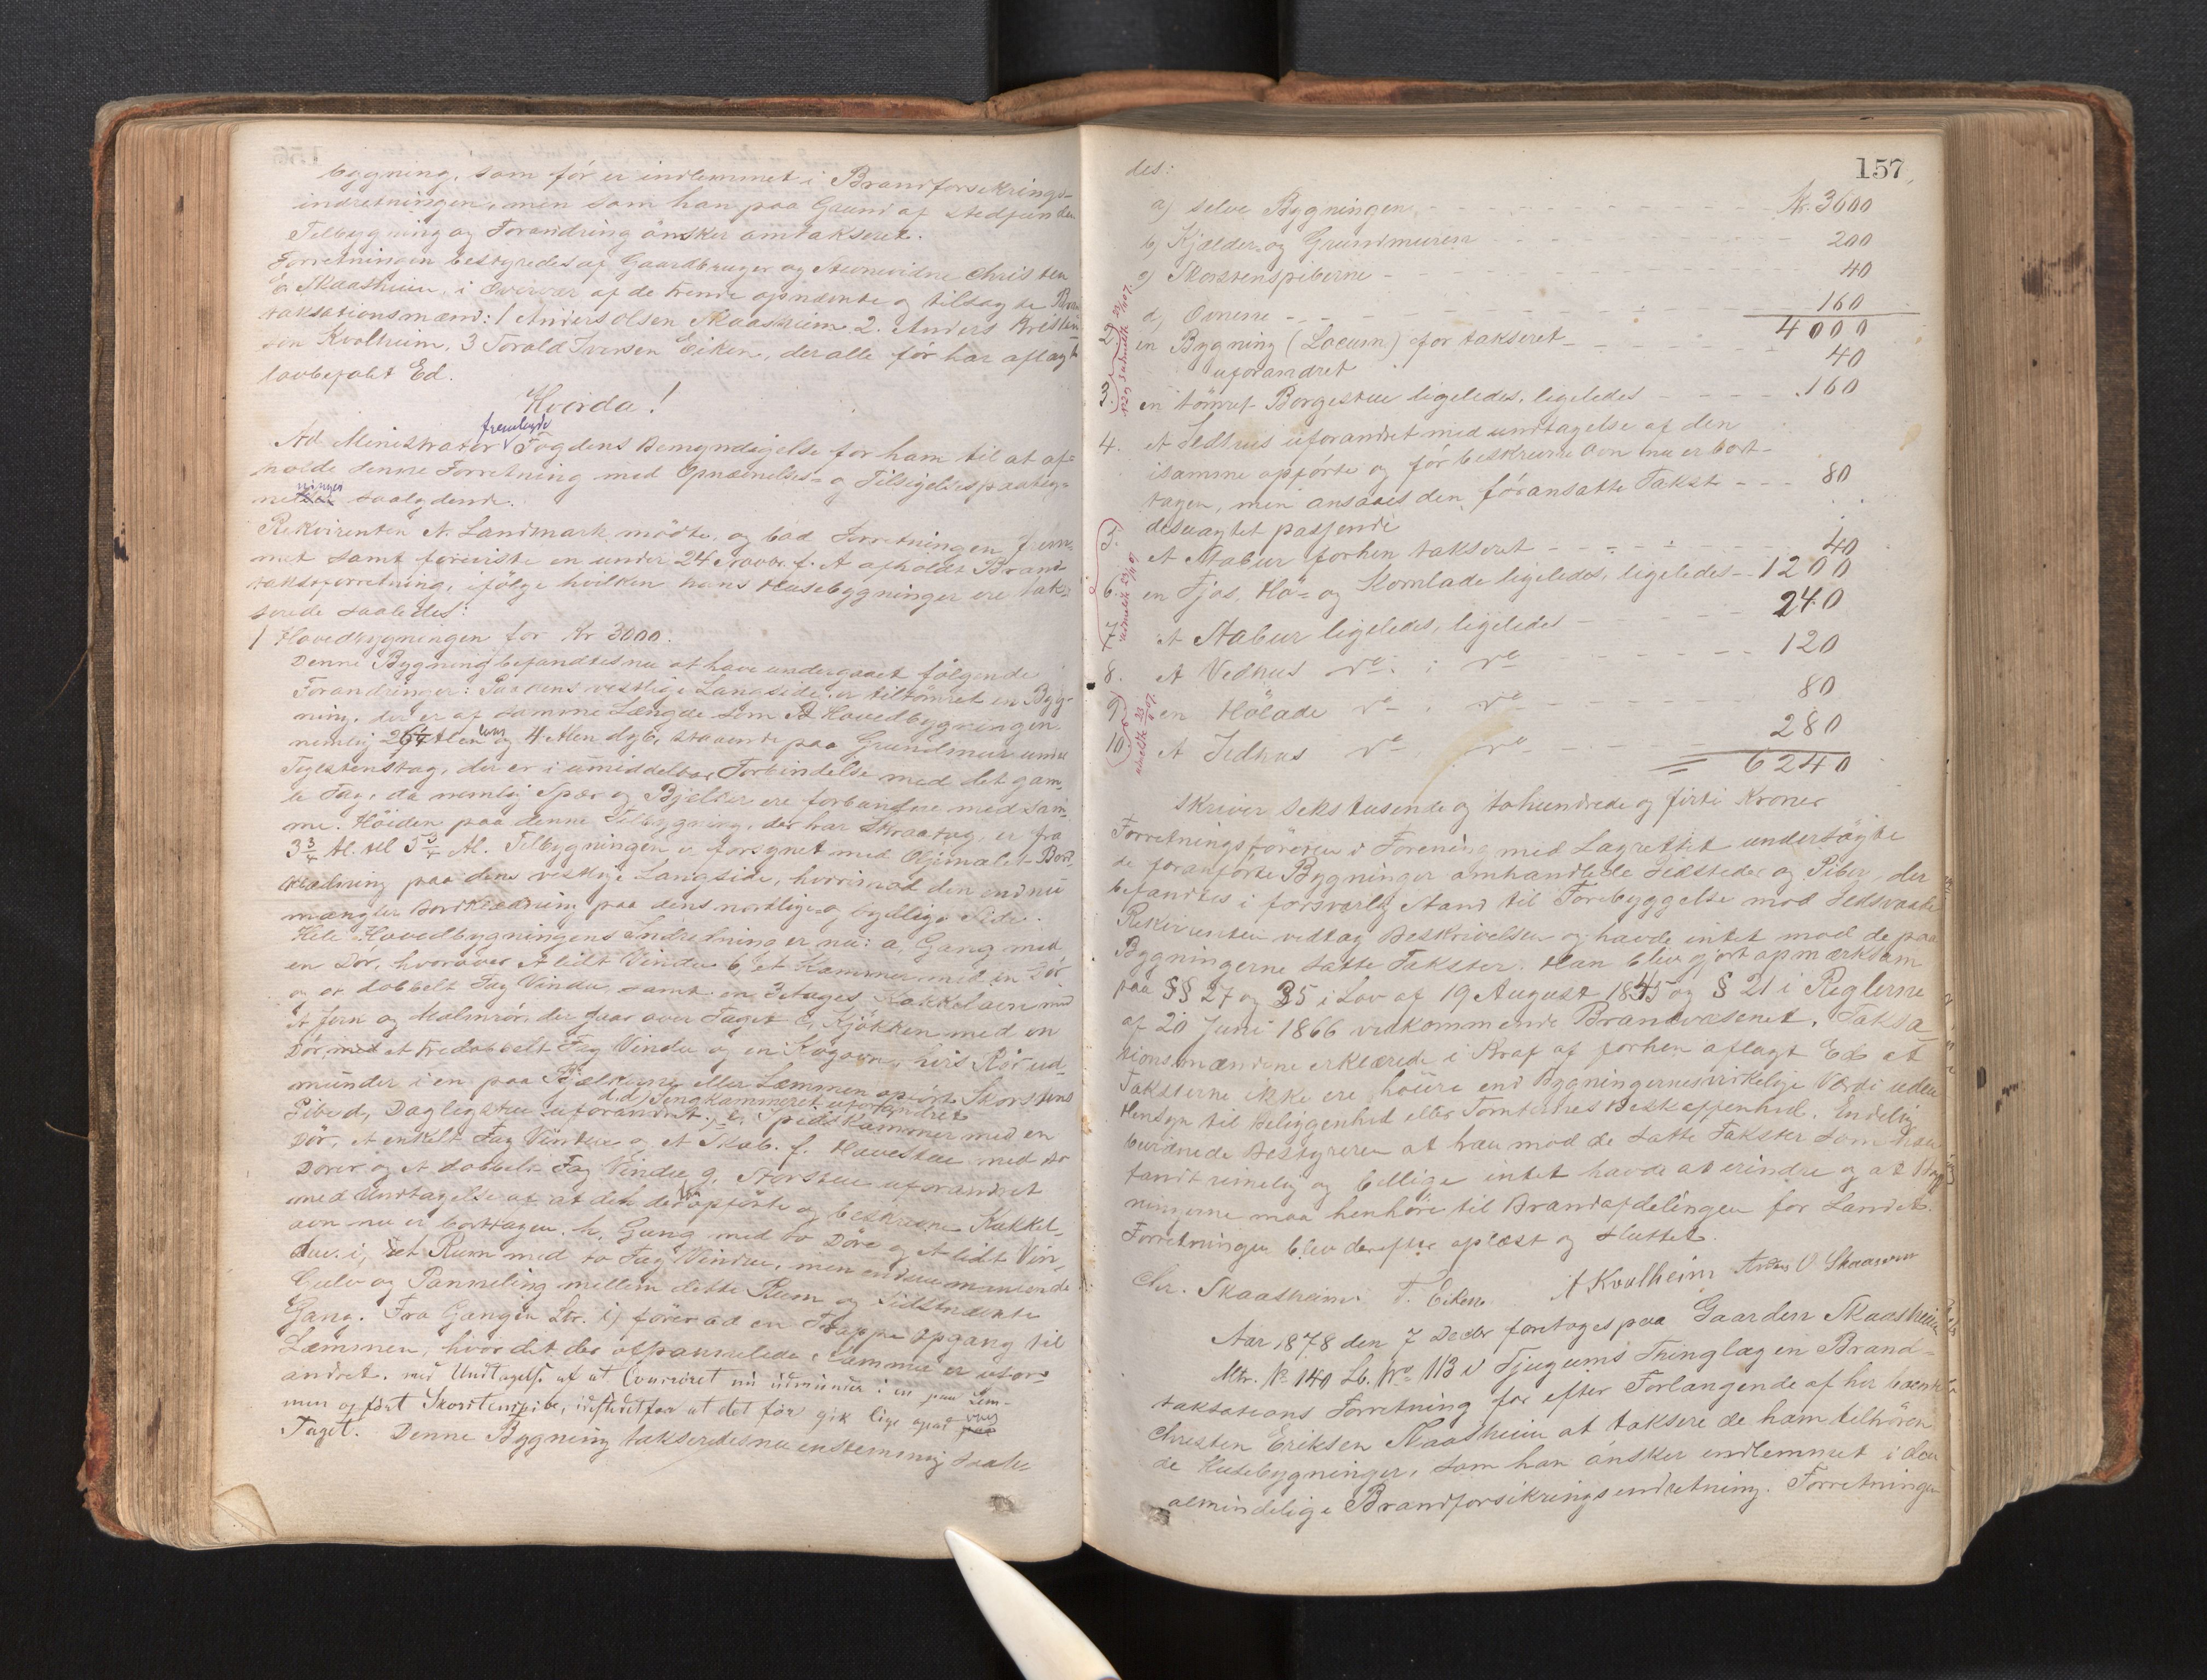 bygning, som før er indlemmet i Brandforsikrings-
indretningen, men som han paa Grund af stedfunden
Tilbygning og Forandring ønsker omtakseret.
Forretningen bestyredes af Gaardbruger og Stevnevidne Christen
E. Skaasheim, i Overvær af de trende opnævnte og tilsagte Brand
taksationsmænd: 1 Anders Olsen Skaasheim 2. Anders Kristen-
sen Kvalheim, 3 Torald Iversen Eiken, der alle før har aflagt
lovbefalet Ed.
Hvorda!
Ad Ministrator fremlagde Fogdens Bemyndigelse for ham til at af-
holde denne Forretning med Opnævnelses- og Tilsigelsespaateg-
ninger saalydende.
Rekvirenten A. Landmark mødte, og bad Forretningen frem-
met samt foreviste en under 24 Novbr. f. A. afholdt Brand
taksforretning, ifølge hvilken hans Husebygninger ere tak-
serede saaledes:
1 Hovedbygningen for Kr 3000.
Denne Bygning befandtes nu at have undergaaet følgende
Forandringer: Paa dens vestlige Langside er tiltømret en Byg-
ning, der er af samme Længde som Hovedbygningen
nemlig Alen lang og 4 Alen dyb, staaende paa Grundmur under
Teglstenstag, der er i umiddelbar Forbindelse med det gam-
le Tag, da nemlig Spær og Bjelker ere forbundne med sam-
me. Høiden paa denne Tilbygning, der har Skraatag, er fra
3 3/4 Al. til 5 3/4 Al. Tilbygningen er forsynet med Oljemalet Bord-
klædning paa dens vestlige Langside, hvorimod den endnu
mangler Bordklædning paa dens nordlige og sydlige Side.
Hele Hovedbygningens Indredning er nu: a, Gang med
en Dør, hvorover et lidt Vindu b, et Kammer med en Dør
og et dobbelt Fag Vindu, samt en 3 Etages Kakkelovn med
et Jern og Malmrør, der gaar over Taget c, Kjøkken med en
Dør, med et tredobbelt Fag Vindu og en Kogeovn, hvis Rør ud-
munder i en paa Bjælkerne eller Læmmen opført Skorstens
Pibe d, Dagligstue uforandret; d.d, Sengkammeret uforandret e, Spisekammer med en
Dør, et enkelt Fag Vindue og et Skab. f. Havestue med to
Dører og et dobbelt Fag Vindu g, Storstue uforandret
med Undtagelse af at den der før opførte og beskrevne Kakkel-
ovn nu er borttagen. h, Gang med to Døre og et lidt Vin-
due. i, et Rum med to Fag Vinduer, men endnu manlende
Gulv og Panneling mellem dette Rum og sidstnævnte
Gang. Fra Gangen Ltr. i, fører ad en Trappe Opgang til
Læmmen, hvor det der afpannelede Kammer er ufor-
andret, med Undtagelse af at Ovnrøret nu udmunder i en paa Læm-
men opført Skorstenspibe, istedetfor at det før gik lige opad over
Taget. Denne Bygning takseredes nu enstemmig saale-
des:
157
a) selve Bygningen Kr. 3600
b) Kjælder og Grundmuren 200
c) Skorstenspiberne 40
d) Ovnene 160
4000
2) en Bygning (Locum) før takseret 40
uforandret
3. en tømret Borgestue ligeledes, ligeledes 160
4. et Ildhus uforandret med undtagelse af den
isamme opførte og før beskrevne Ovn nu er bort-
tagen, men ansaaes den før ansatte Takst 80
desuagtet passende
5. et Stabur forhen takseret 40
6. en Fjøs, Hø- og Kornlade ligeledes, ligeledes 1200
7. et Stabur ligeledes, ligeledes 240
8. et Vedhus do. : do 120
9 en Hølade do. , do 80
10 et Ildhus do do 280
6240
skriver sekstusende og tohundrede og firti Kroner
Forretningsføreren i Forening med Lagrettet undersøgte
de foranførte Bygninger omhandlede Ildsteder og Piber, der
befandtes i forsvarlig Stand til Forebyggelse mod Ildsvaade
Rekvirenten vedtog Beskrivelsen og havde intet mod de paa
Bygningerne satte Takster. Han blev gjort opmærksom
paa §§ 27 og 35 i Lov af 19 August 1845 og § 21 i Reglerne
af 20 Juni 1866 vedkommende Brandvæsenet. Taksa-
tionsmændene erklærede i Kraf af forhen aflagt Ed at
Taksterne ikke ere høiere end Bygningernes virkelige Værdi uden
Hensyn til Beliggenhed eller Tomternes Beskaffenhed. Endelig
bevidnede Bestyreren at han mod de satte Takster som
fandt rimelig og billige intet havde at erindre og at Byg-
ningerne maa henhøre til Brandafdelingen for Landet.
Forretningen blev derefter oplæst og sluttet.
Chr. Skaasheim T. Eiken A Kvalheim Anders O. Skaasem
Aar 1878 den 7 Decbr foretoges paa Gaarden Skaasheim
Mtr. No 140 Lb. No 113 i Fjugums Thinglag en Brand-
taksations Forretning for efter Forlangende af her boende
Christen Eriksen Skaasheim at taksere de ham tilhøren-
de Husebygninger, som han ønsker indlemmet i den
almindelige Brandforsikringsindretning. Forretningen